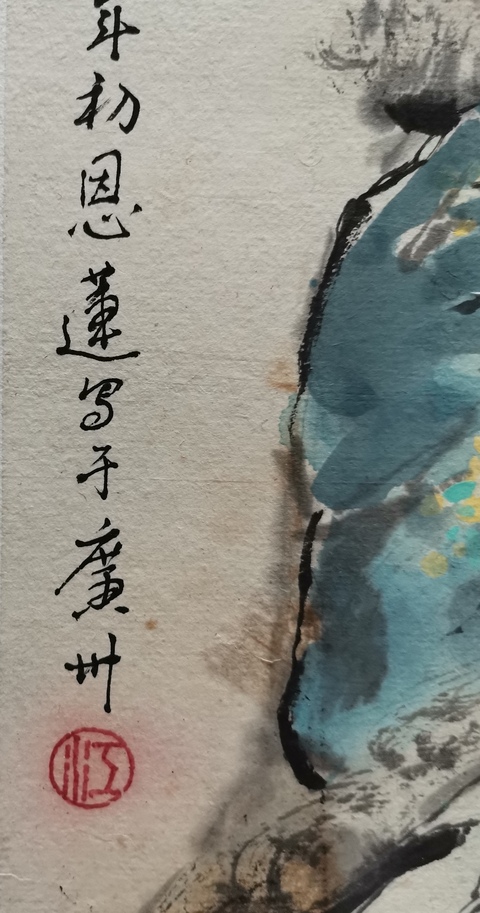 年初恩蓮写于廣州
江